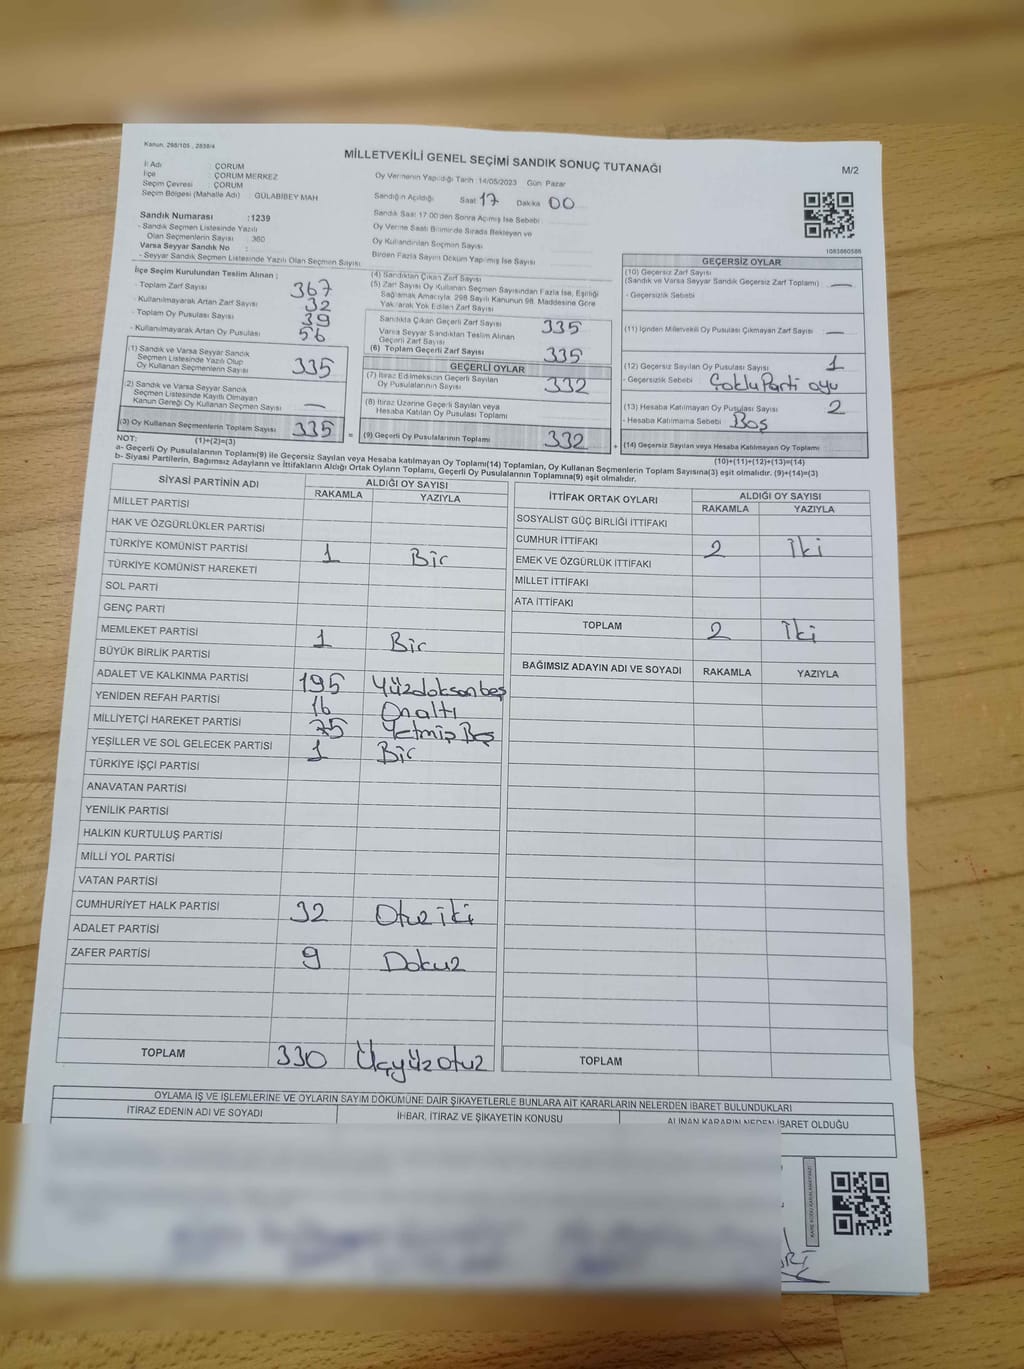 Kanun, 298/105 , 2839/4
MİLLETVEKİLİ GENEL SEÇİMİ SANDIK SONUÇ TUTANAĞI
M/2
İl Adı : ÇORUM
İlçe : ÇORUM MERKEZ
Seçim Çevresi : ÇORUM
Seçim Bölgesi (Mahalle Adı) : GÜLABİBEY MAH
Oy Vermenin Yapıldığı Tarih :14/05/2023 Gün Pazar
Sandığın Açıldığı Saat 17 Dakika 00
Sandık Saat 17:00'den Sonra Açılmış İse Sebebi
Oy Verme Saati Bitiminde Sırada Bekleyen ve
Oy Kullandırılan Seçmen Sayısı
Birden Fazla Sayım Döküm Yapılmış İse Sayısı
1083860586
Sandık Numarası :1239
- Sandık Seçmen Listesinde Yazılı
Olan Seçmenlerin Sayısı : 360
Varsa Seyyar Sandık No :
- Seyyar Sandık Seçmen Listesinde Yazılı Olan Seçmenlerin Sayısı
İlçe Seçim Kurulundan Teslim Alınan ;
- Toplam Zarf Sayısı 367
- Kullanılmayarak Artan Zarf Sayısı 32
- Toplam Oy Pusulası Sayısı 39
- Kullanılmayarak Artan Oy Pusulası 56
1) Sandık ve Varsa Seyyar Sandık
Seçmen Listesinde Yazılı Olup
Oy Kullanan Seçmenlerin Sayısı 335
2) Sandık ve Varsa Seyyar Sandık
Seçmen Listesinde Kayıtlı Olmayan
Kanun Gereği Oy Kullanan Seçmen Sayısı —
(3) Oy Kullanan Seçmenlerin Toplam Sayısı 335 =
(1)+(2)=(3)
(4) Sandıktan Çıkan Zarf Sayısı
(5) Zarf Sayısı Oy Kullanan Seçmen Sayısından Fazla İse, Eşitliği
Sağlamak Amacıyla, 298 Sayılı Kanunun 98. Maddesine Göre
Yakılarak Yok Edilen Zarf Sayısı
Sandıkta Çıkan Geçerli Zarf Sayısı 335
Varsa Seyyar Sandıktan Teslim Alınan
Geçerli Zarf Sayısı
(6) Toplam Geçerli Zarf Sayısı 335
GEÇERLİ OYLAR
(7) İtiraz Edilmeksizin Geçerli Sayılan
Oy Pusulalarının Sayısı 332
(8) İtiraz Üzerine Geçerli Sayılan veya
Hesaba Katılan Oy Pusulası Toplamı
(9) Geçerli Oy Pusulalarının Toplamı 332 +
GEÇERSİZ OYLAR
(10) Geçersiz Zarf Sayısı
(Sandık ve Varsa Seyyar Sandık Geçersiz Zarf Toplamı) —
- Geçersizlik Sebebi
(11) İçinden Milletvekili Oy Pusulası Çıkmayan Zarf Sayısı —
(12) Geçersiz Sayılan Oy Pusulası Sayısı 1
- Geçersizlik Sebebi Çoklu Parti oyu
(13) Hesaba Katılmayan Oy Pusulası Sayısı 2
- Hesaba Katılmama Sebebi Boş
(14) Geçersiz Sayılan veya Hesaba Katılmayan Oy Toplamı
(10)+(11)+(12)+(13)=(14)
NOT:
a- Geçerli Oy Pusulalarının Toplamı(9) ile Geçersiz Sayılan veya Hesaba katılmayan Oy Toplamı(14) Toplamları, Oy Kullanan Seçmenlerin Toplam Sayısına(3) eşit olmalıdır. (9)+(14)=(3)
b- Siyasi Partilerin, Bağımsız Adayların ve İttifakların Aldığı Ortak Oyların Toplamı, Geçerli Oy Pusulalarının Toplamına(9) eşit olmalıdır.
SİYASİ PARTİNİN ADI ALDIĞI OY SAYISI
RAKAMLA YAZIYLA
MİLLET PARTİSİ
HAK VE ÖZGÜRLÜKLER PARTİSİ
TÜRKİYE KOMÜNİST PARTİSİ 1 Bir
TÜRKİYE KOMÜNİST HAREKETİ
SOL PARTİ
GENÇ PARTİ
MEMLEKET PARTİSİ 1 Bir
BÜYÜK BİRLİK PARTİSİ
ADALET VE KALKINMA PARTİSİ 195 Yüzdoksanbeş
YENİDEN REFAH PARTİSİ 16 Onaltı
MİLLİYETÇİ HAREKET PARTİSİ 75 Yetmiş Beş
YEŞİLLER VE SOL GELECEK PARTİSİ 1 Bir
TÜRKİYE İŞÇİ PARTİSİ
ANAVATAN PARTİSİ
YENİLİK PARTİSİ
HALKIN KURTULUŞ PARTİSİ
MİLLİ YOL PARTİSİ
VATAN PARTİSİ
CUMHURİYET HALK PARTİSİ 32 Otuz iki
ADALET PARTİSİ
ZAFER PARTİSİ 9 Dokuz
TOPLAM 330 Üçyüz otuz
İTTİFAK ORTAK OYLARI ALDIĞI OY SAYISI
RAKAMLA YAZIYLA
SOSYALİST GÜÇ BİRLİĞİ İTTİFAKI
CUMHUR İTTİFAKI 2 İki
EMEK VE ÖZGÜRLÜK İTTİFAKI
MİLLET İTTİFAKI
ATA İTTİFAKI
TOPLAM 2 İki
BAĞIMSIZ ADAYIN ADI VE SOYADI RAKAMLA YAZIYLA
TOPLAM
OYLAMA İŞ VE İŞLEMLERİNE VE OYLARIN SAYIM DÖKÜMÜNE DAİR ŞİKAYETLERLE BUNLARA AİT KARARLARIN NELERDEN İBARET BULUNDUKLARI
İTİRAZ EDENİN ADI VE SOYADI İHBAR, İTİRAZ VE ŞİKAYETİN KONUSU ALINAN KARARIN NEDEN İBARET OLDUĞU